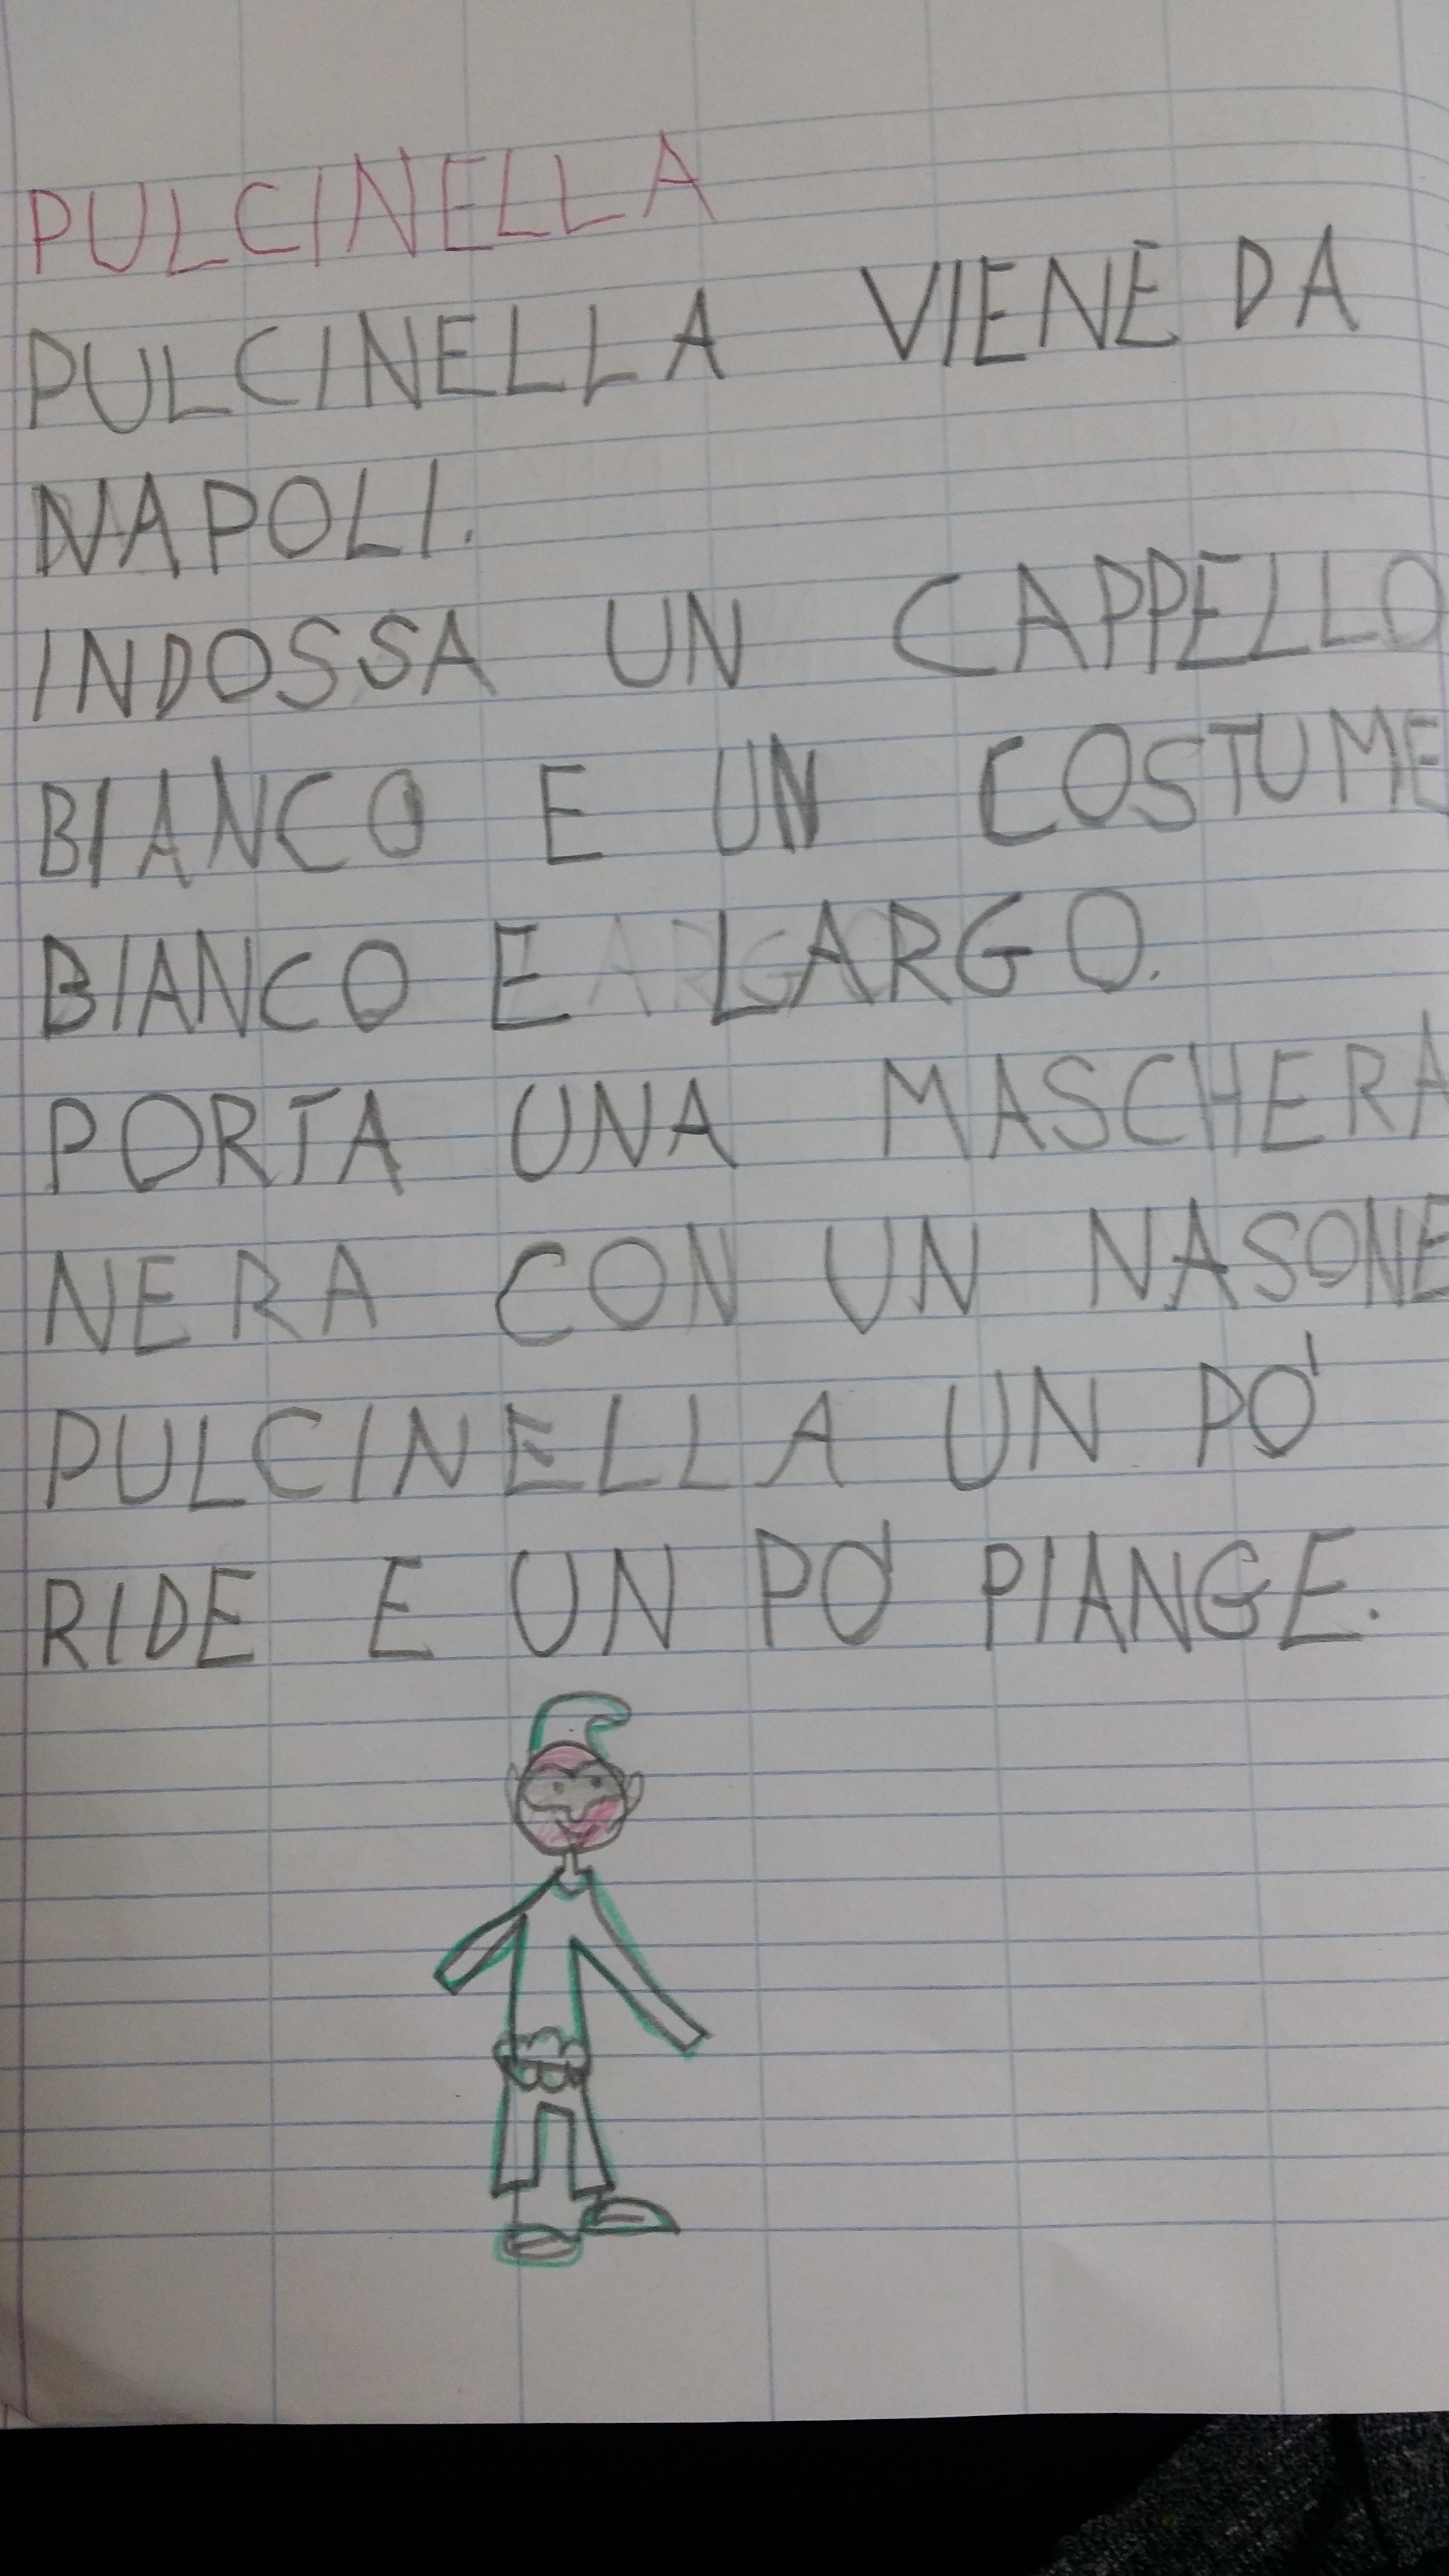 PULCINELLA
PULCINELLA VIENE DA
NAPOLI.
INDOSSA UN CAPPELLO
BIANCO E UN COSTUME
BIANCO E LARGO.
PORTA UNA MASCHERA
NERA CON UN NASONE
PULCINELLA UN PO'
RIDE E UN PO' PIANGE.